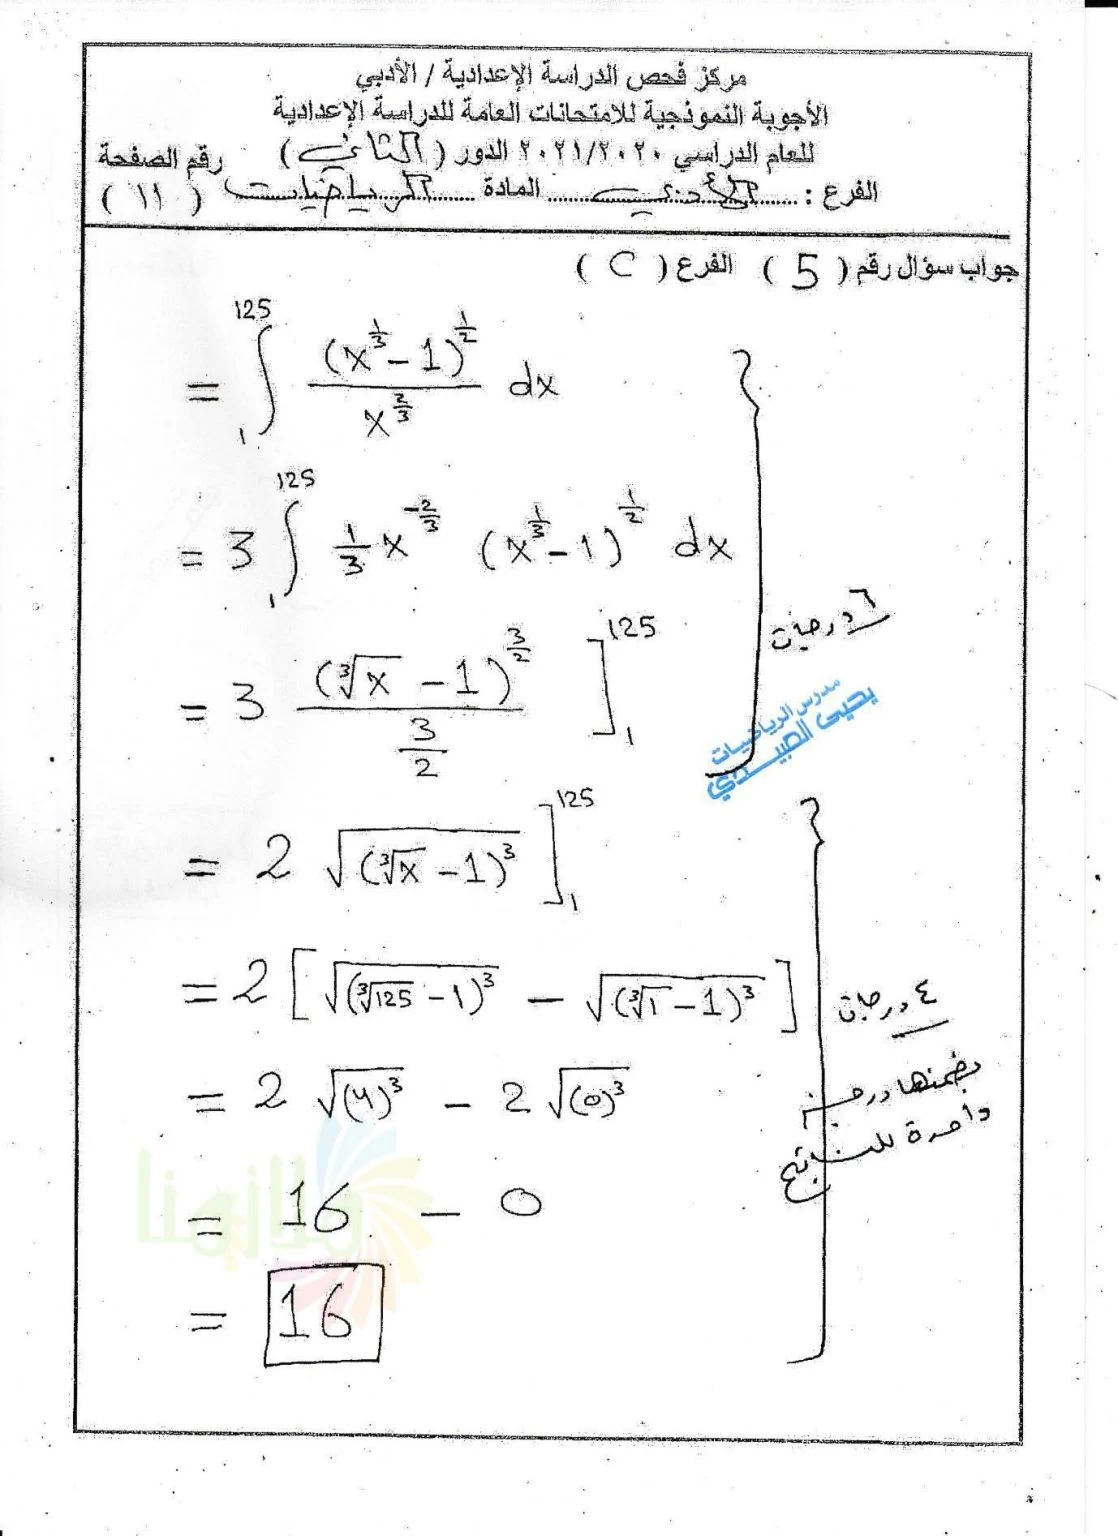 مركز فحص الدراسة الإعدادية / الأدبي
الأجوبة النموذجية للامتحانات العامة للدراسة الإعدادية
للعام الدراسي ٢٠٢١/٢٠٢٠ الدور ( الثاني ) رقم الصفحة
الفرع : الأدبي المادة الرياضيات ( ١١ )
جواب سؤال رقم ( 5 ) الفرع ( C )
= ∫₁¹²⁵ (x^(1/3) - 1)^(1/2) / x^(2/3) dx
= 3 ∫₁¹²⁵ 1/3 x^(-2/3) (x^(1/3) - 1)^(1/2) dx
٦ درجات
= 3 (∛x - 1)^(3/2) / (3/2) ]₁¹²⁵
مدرس الرياضيات
يحيى العبيدي
= 2 √((∛x - 1)³) ]₁¹²⁵
= 2 [ √((∛125 - 1)³) - √((∛1 - 1)³) ]
٤ درجات
بضمنها درجة
واحدة للناتج
= 2 √((4)³) - 2 √((0)³)
= 16 - 0
= 16
ملازمنا